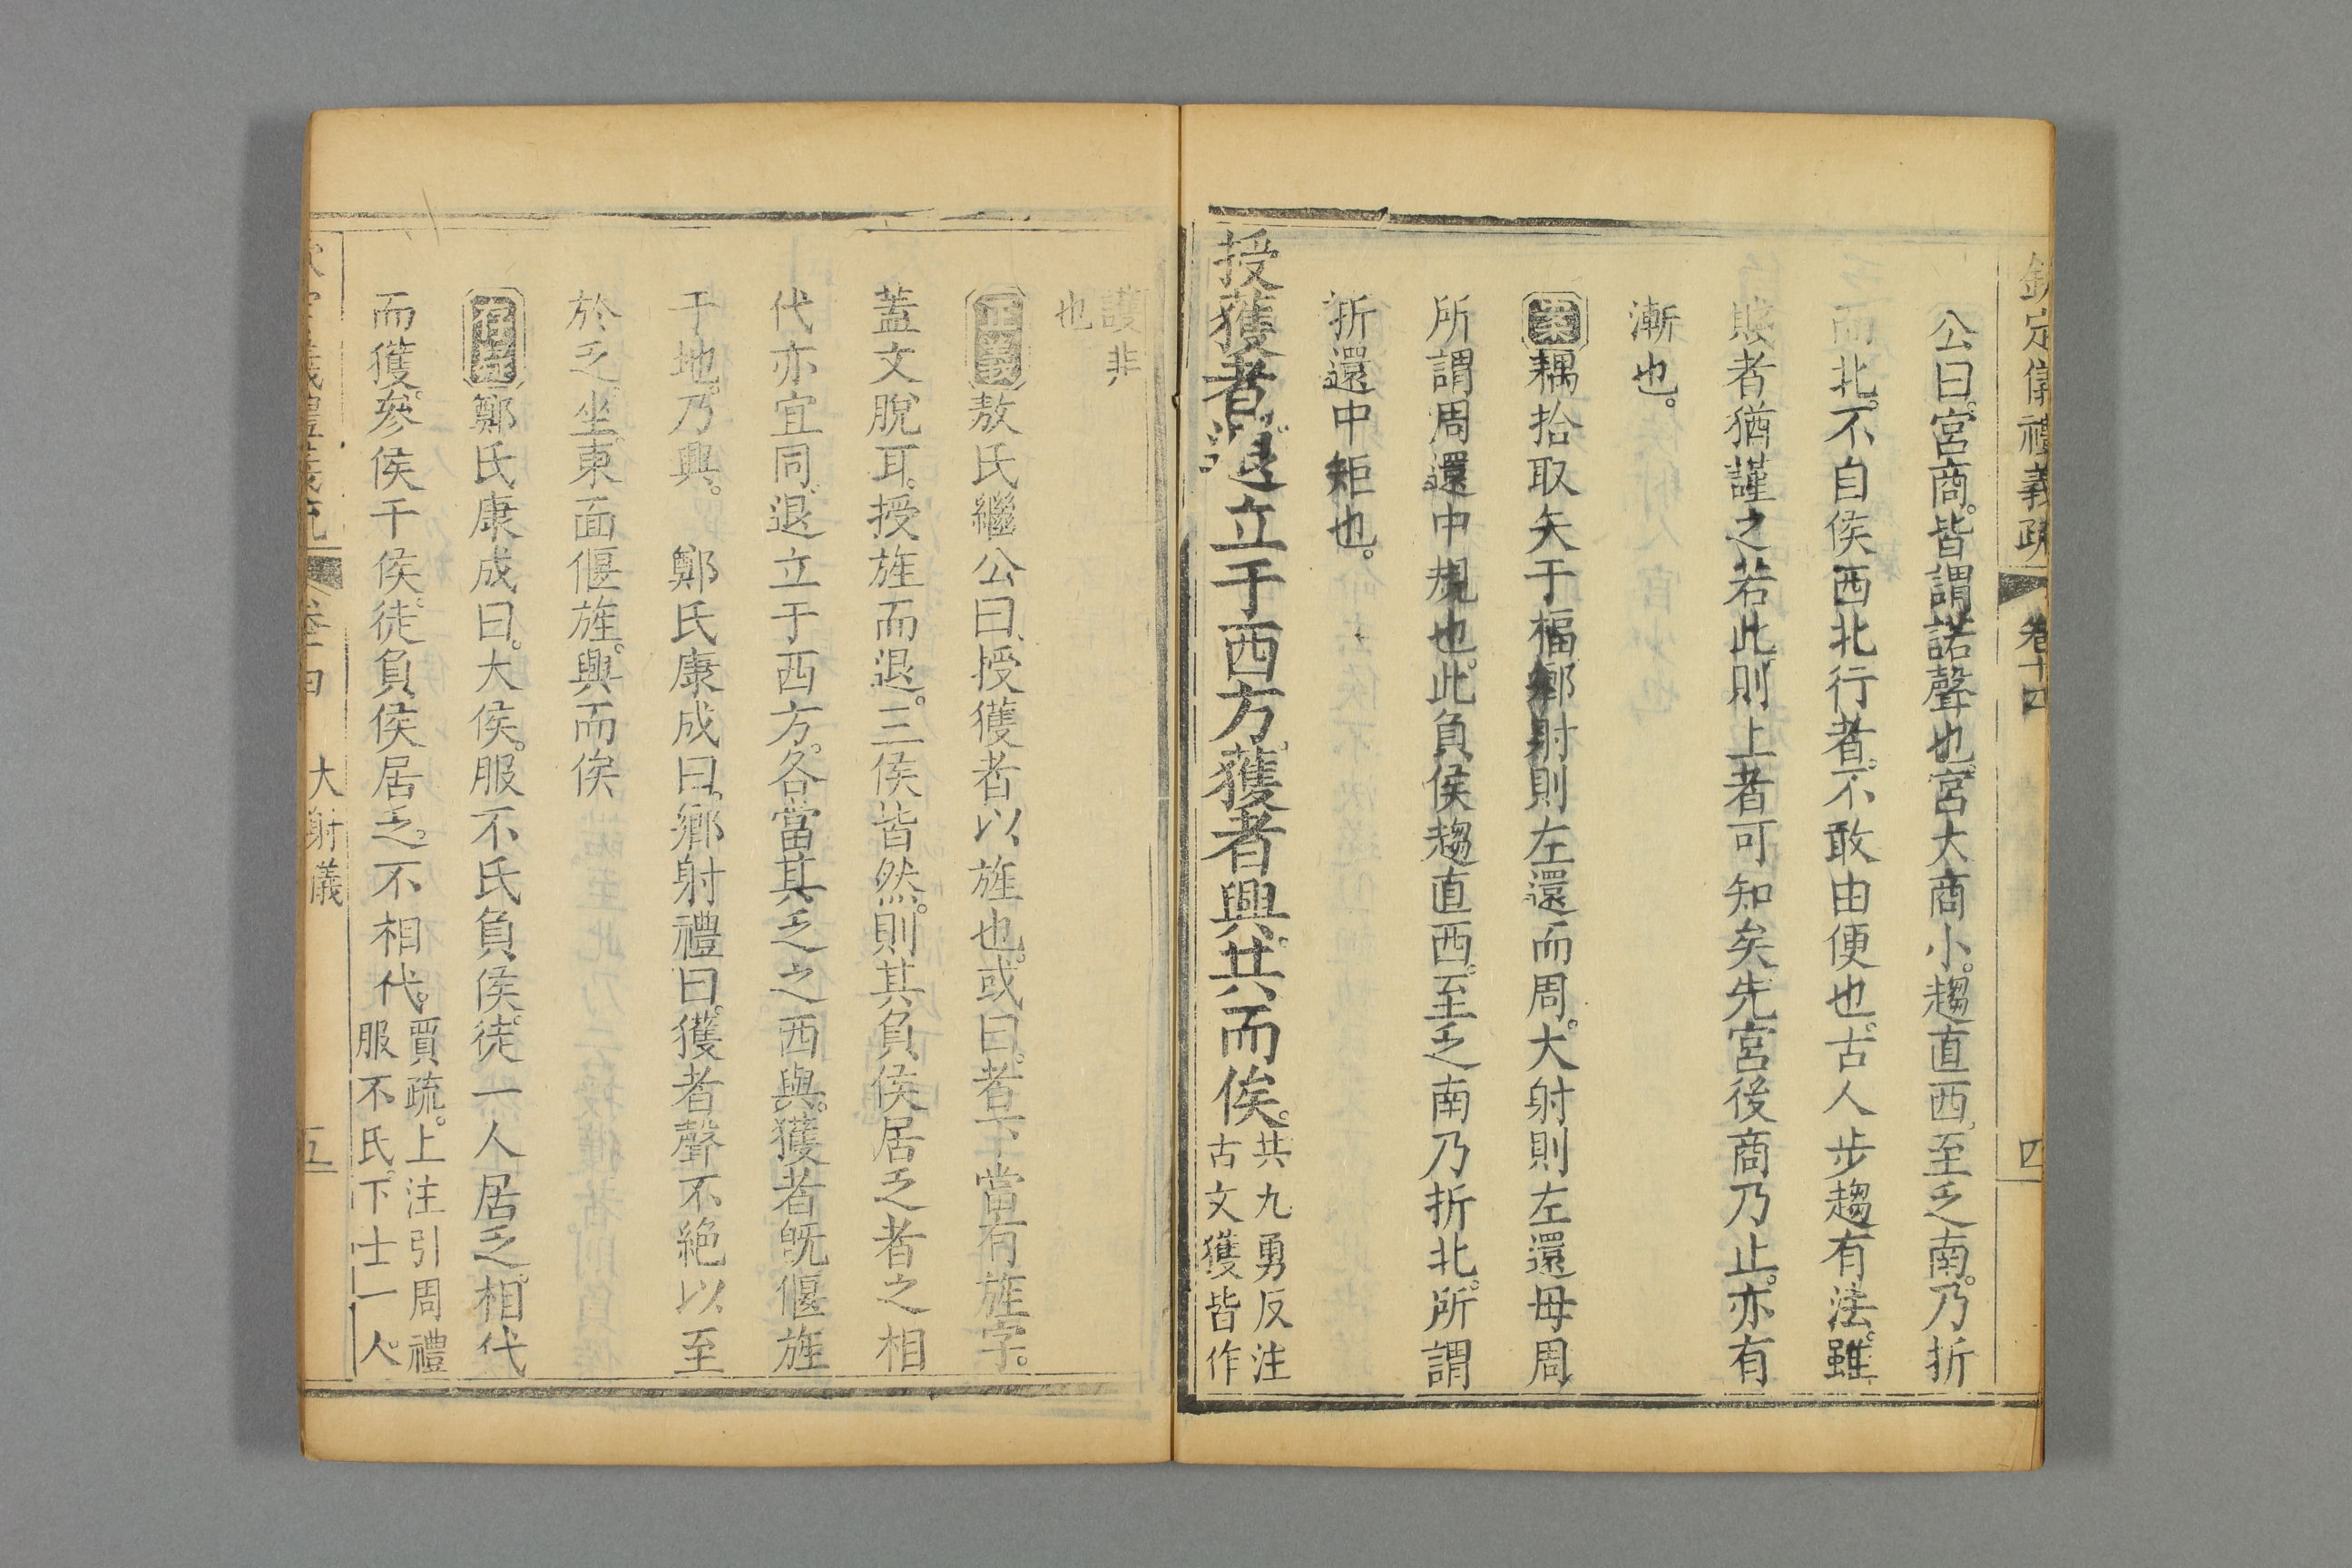 欽定儀禮義疏 卷十四 四
公曰。宮商。皆謂諾聲也。宮大商小。趨直西。至乏南。乃折
而北。不自侯西北行者。不敢由便也。古人步趨有法。雖
賤者猶謹之若此則上者可知矣先宮後商乃止。亦有
漸也。
案耦拾取矢于楅鄉射則左還而周。大射則左還毋周
所謂周還中規也。此負侯趨直西。至乏南乃折北。所謂
折還中矩也。
授獲者。退立于西方。獲者興。共而俟。共九勇反注
古文獲皆作
護非
也
正義敖氏繼公曰、授獲者以旌也。或曰。者下當有旌字。
蓋文脫耳。授旌而退。三侯皆然。則其負侯居乏者之相
代亦宜同。退立于西方。各當其乏之西與。獲者旣偃旌
于地。乃興。 鄭氏康成曰。鄉射禮曰。獲者聲不絶以至
於乏。坐東面偃旌。興而俟
存疑鄭氏康成曰。大侯。服不氏負侯。徒一人居乏。相代
而獲。參侯干侯。徒負侯居乏。不相代。賈疏。上注引周禮
服不氏。下士一人。
大射儀 五